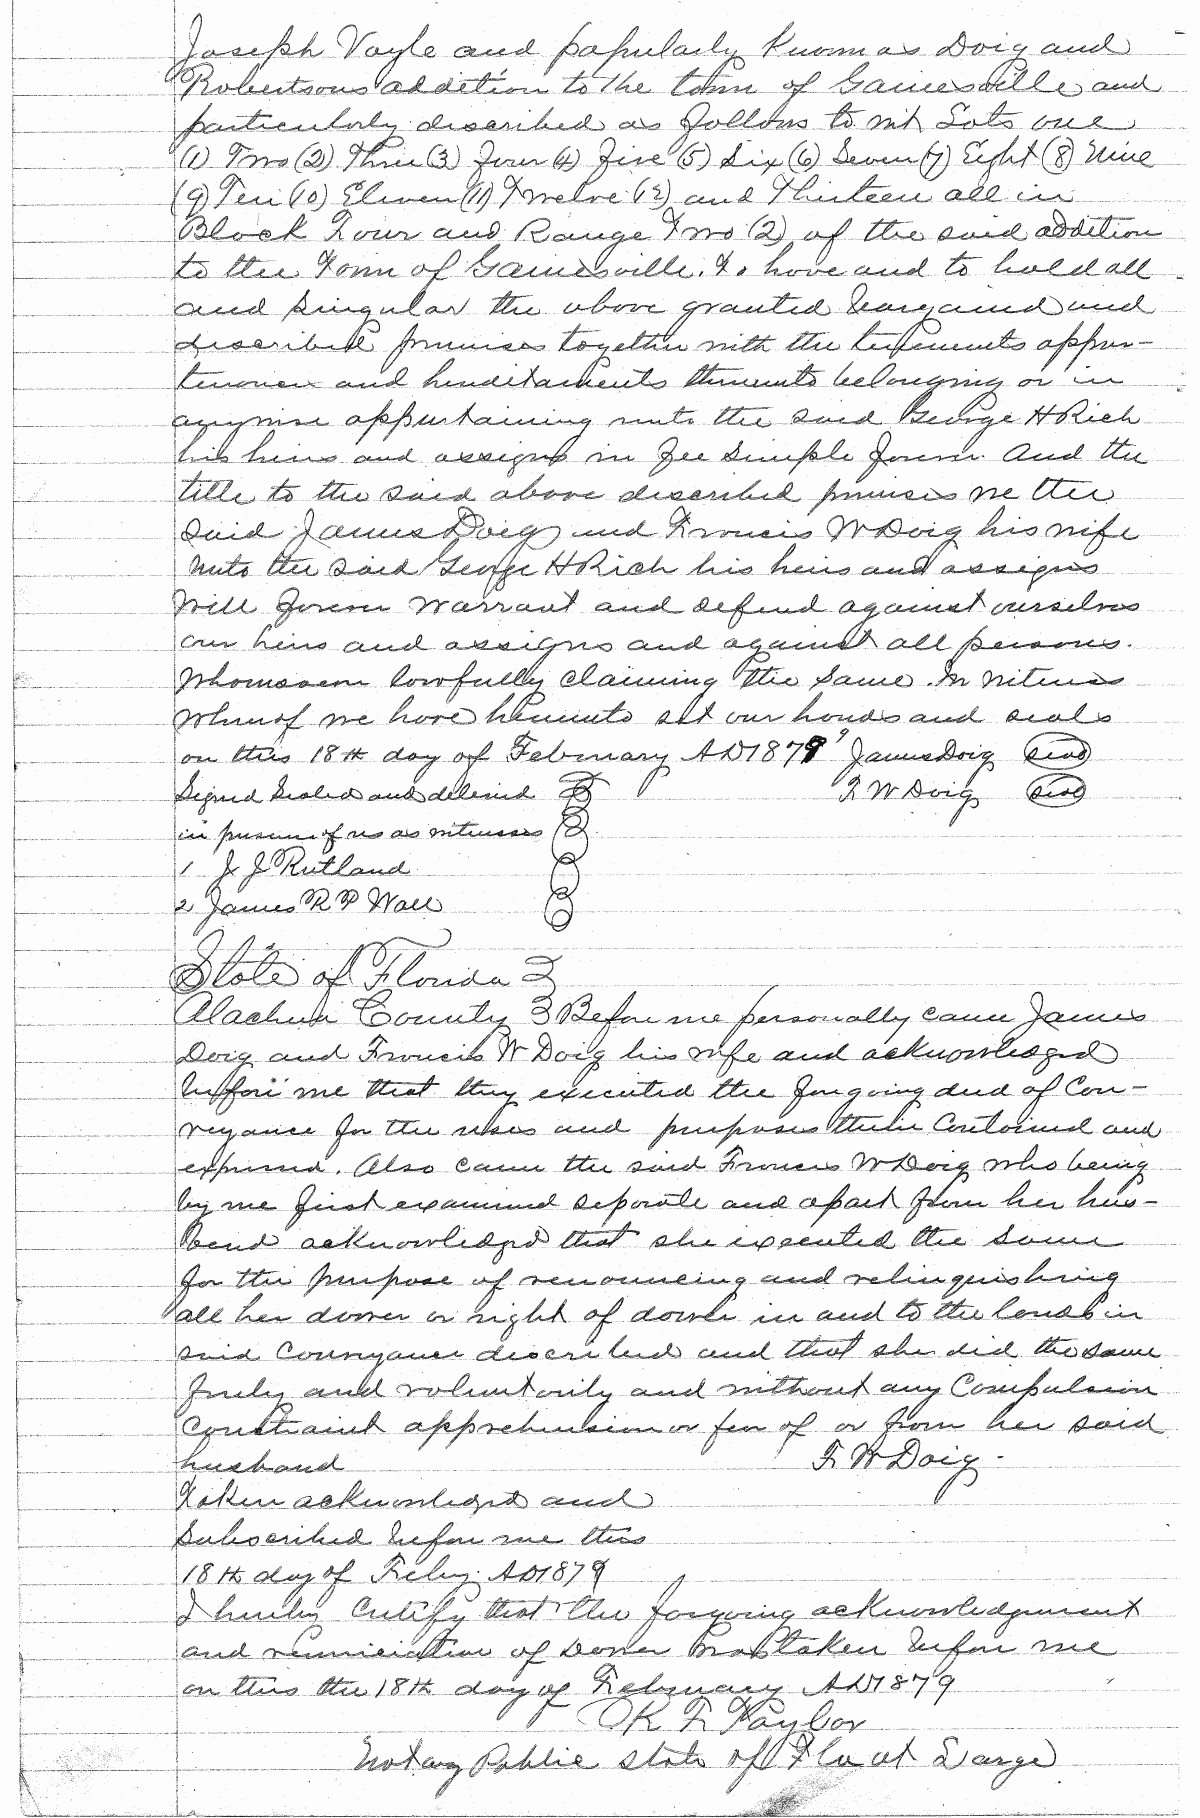 Joseph Voyle and popularly Known as Doig and
Robertsons addition to the town of Gainesville and
particularly described as follows to wit Lots one
(1) Two (2) Three (3) Four (4) Five (5) Six (6) Seven (7) Eight (8) Nine
(9) Ten (10) Eleven (11) Twelve (12) and Thirteen all in
Block Four and Range Two (2) of the said addition
to the Town of Gainesville. To have and to hold all
and Singular the above granted bargained and
described premises together with the tenements appur-
tenances and hereditaments thereunto belonging or in
anywise appertaining unto the said George H Rich
his heirs and assigns in Fee Simple forever. And the
title to the said above described premises we the
said James Doig and Francis W Doig his wife
unto the said George H Rich his heirs and assigns
Will forever Warrant and defend against ourselves
our heirs and assigns and against all persons.
Whomsoever lawfully claiming the same. In witness
whereof we have hereunto set our hands and seals
on this 18th day of February AD 1879 James Doig Seal
Signed Sealed and delivered F W Doig Seal
in presence of us as witnesses
1 J J Rutland
2 James R P Wall
State of Florida
Alachua County Before me personally came James
Doig and Francis W Doig his wife and acknowledged
before me that they executed the foregoing deed of Con-
veyance for the uses and purposes therein Contained and
expressed. Also came the said Francis W Doig who being
by me first examined separate and apart from her hus-
band acknowledged that she executed the same
for the purpose of renouncing and relinquishing
all her dower or right of dower in and to the lands in
said Conveyance described and that she did the same
freely and voluntarily and without any Compulsion
Constraint apprehension or fear of or from her said
husband F W Doig.
Taken acknowledged and
Subscribed before me this
18th day of Feby. AD 1879
I hereby Certify that the foregoing acknowledgement
and renunciation of Dower was taken before me
on this the 18th day of February AD 1879
R F Taylor
Notary Public State of Fla at Large